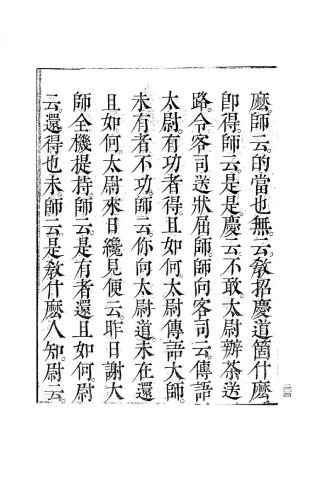 麽師云。的當也無。云。教招慶道箇什麽
即得。師云。是是。慶云。不敢。太尉辦茶送
路。令客司送狀屈師。師向客司云。傳語
太尉。有功者得。且如何太尉傳語大師。
未有者不功。師云。你向太尉道。未在。還
且如何。太尉來日纔見便云。昨日謝大
師全機提持。師云。是有者還且如何。尉
云。還得也未。師云。是教什麽人知。尉云。
二〇四